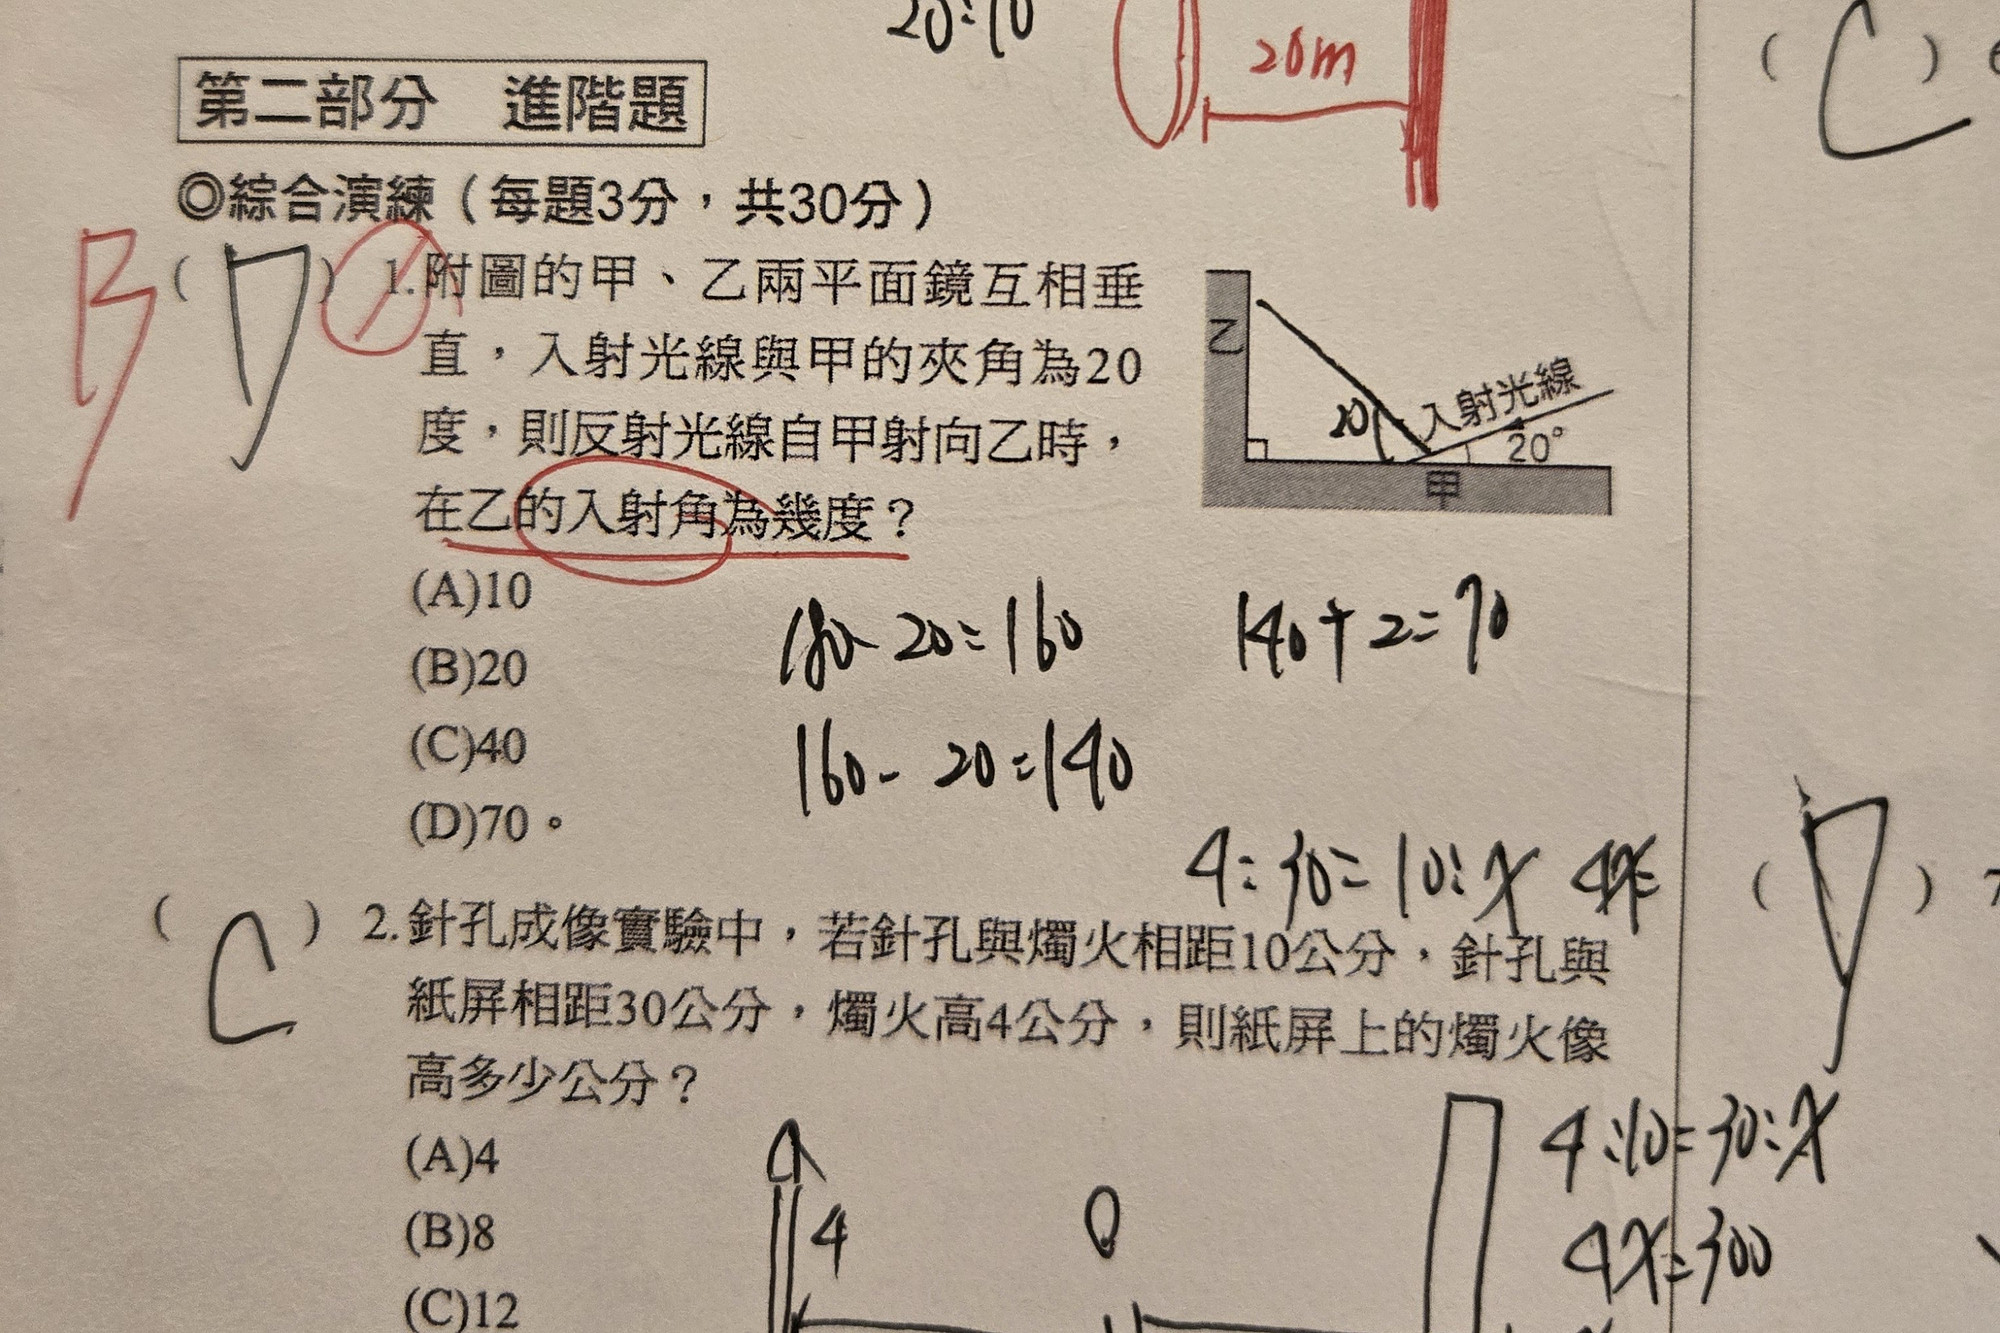 20:10
20m
第二部分 進階題
◎綜合演練（每題3分，共30分）
B ( D ) 1.附圖的甲、乙兩平面鏡互相垂
直，入射光線與甲的夾角為20
度，則反射光線自甲射向乙時，
在乙的入射角為幾度？
(A)10
(B)20
(C)40
(D)70。
乙
入射光線
20
20°
甲
180-20=160
140÷2=70
160-20=140
4:30=10:x 4x=
( C ) 2.針孔成像實驗中，若針孔與燭火相距10公分，針孔與
紙屏相距30公分，燭火高4公分，則紙屏上的燭火像
高多少公分？
(A)4
(B)8
(C)12
4
4:10=30:x
4x=300
( C )
( D ) 7